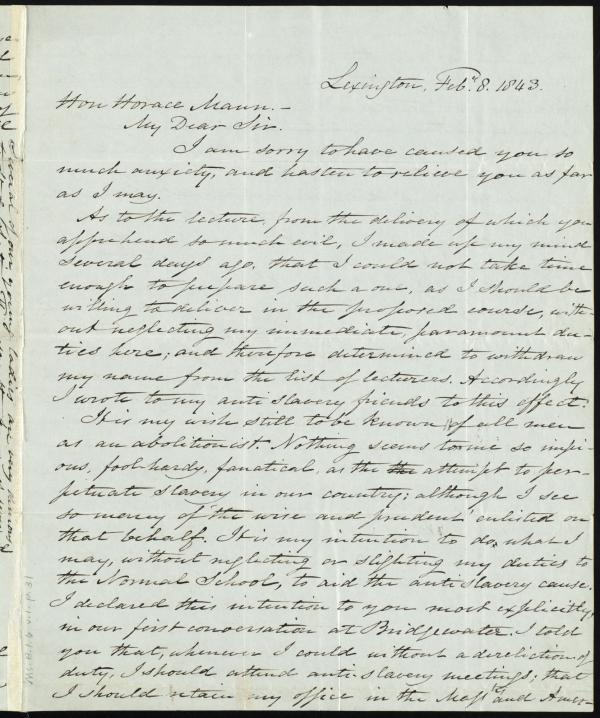 Lexington, Feb.y 8. 1843.
Hon Horace Mann.-
My Dear Sir.
I am sorry to have caused you so
much anxiety, and hasten to relieve you as far
as I may.
As to the lecture, from the delivery of which you
apprehend so much evil, I made up my mind
several days ago, that I could not take time
enough to prepare such a one, as I should be
willing to deliver in the proposed course, with-
out neglecting my immediate, paramount du-
ties here; and therefore determined to withdraw
my name from the list of lecturers. Accordingly
I wrote to my anti slavery friends to this effect.
It is my wish still to be known of all men
as an abolitionist. Nothing seems to me so impi-
ous, fool-hardy, fanatical, as the the attempt to per-
petuate slavery in our country; although I see
so many of 'the wise and prudent' enlisted on
that behalf. It is my intention to do, what I
may, without neglecting or slighting my duties to
the Normal School, to aid the anti slavery cause.
I declared this intention to you most explicitly,
in our first conversation at Bridgewater. I told
you that, whenever I could without a dereliction of
duty, I should attend anti-slavery meetings; that
I should retain my office in the Mass. and Amer-